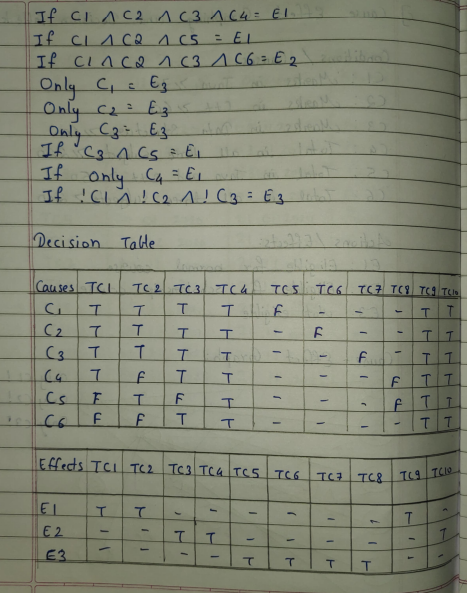 If C1 ∧ C2 ∧ C3 ∧ C4 = E1
If C1 ∧ C2 ∧ C5 = E1
If C1 ∧ C2 ∧ C3 ∧ C6 = E2
Only C1 = E3
Only C2 = E3
Only C3 = E3
If C3 ∧ C5 = E1
If only C4 = E1
If !C1 ∧ !C2 ∧ !C3 = E3
Decision Table
Causes TC1 TC2 TC3 TC4 TC5 TC6 TC7 TC8 TC9 TC10
C1 T T T T F - - - T T
C2 T T T T - F - - T T
C3 T T T T - - F - T T
C4 T F T T - - - F T T
C5 F T F T - - - F T T
C6 F F T T - - - - T T
Effects TC1 TC2 TC3 TC4 TC5 TC6 TC7 TC8 TC9 TC10
E1 T T - - - - - - T -
E2 - - T T - - - - - T
E3 - - - - T T T T - -